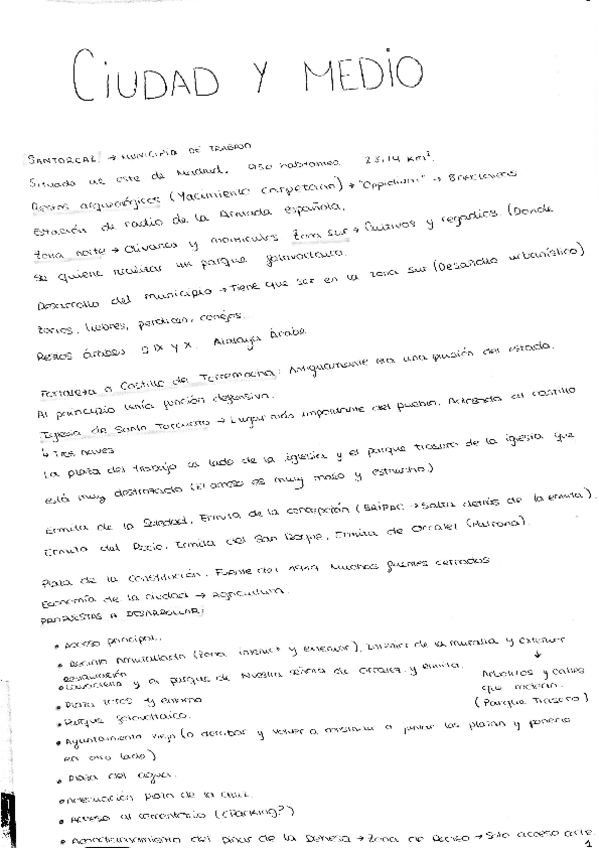 CIUDAD Y MEDIO
SANTORCAZ → MUNICIPIO DE TRABAJO
Situado al este de Madrid. 850 habitantes. 23,14 km².
Restos arqueológicos (Yacimiento carpetano) → "Oppidum" →
Estación de radio de la Armada española.
Zona norte → Olivares y Zona sur → Cultivos y regadíos. (Donde
se quiere realizar un parque fotovoltaico.
Desarrollo del municipio → Tiene que ser en la zona sur (Desarrollo urbanístico)
Zorros, liebres, perdices, conejos.
Restos árabes IX y X. Atalaya Árabe.
Fortaleza o Castillo de Torremocha: Antiguamente era una prisión del estado.
Al principio tenía función defensiva.
Iglesia de Santo Torcuato → Lugar más importante del pueblo. Adosada al castillo
↳ Tres naves
La plaza del trabajo al lado de la iglesia y el parque trasero de la iglesia que
está muy destrozado (El acceso es muy malo y estrecho)
Ermita de la Soledad, Ermita de la concepción ( → Salía detrás de la ermita)
Ermita del Rocío, Ermita del San Roque, Ermita de Orcalez (Patrona).
Plaza de la Constitución. Fuente del Muchas fuentes cerradas
Economía de la ciudad → Agricultura.
PROPUESTAS A DESARROLLAR:
• Acceso principal.
• Recinto Amurallado (Zona interior y exterior), de la muralla y exterior
↓
restauración
• Lavadero y el parque de Nuestra señora de Orcalez y ermita.
Árboles y calles
que
(Parque Trasero)
• Plaza toros y entorno
• Parque fotovoltaico.
• Ayuntamiento viejo (a derribar y volver a las plazas y ponerlo
en otro lado)
• Plaza del agua.
• plaza de la cruz.
• Acceso al cementerio (¿Parking?)
• del pinar de la Dehesa → Zona de Recreo → Solo acceso
1